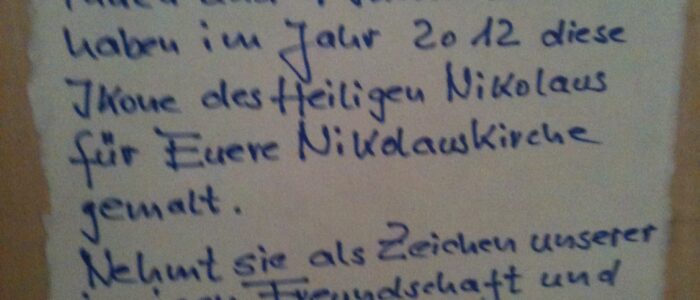 haben im Jahr 2012 diese
Ikone des Heiligen Nikolaus
für Euere Nikolauskirche
gemalt.
Nehmt sie als Zeichen unserer
Freundschaft und